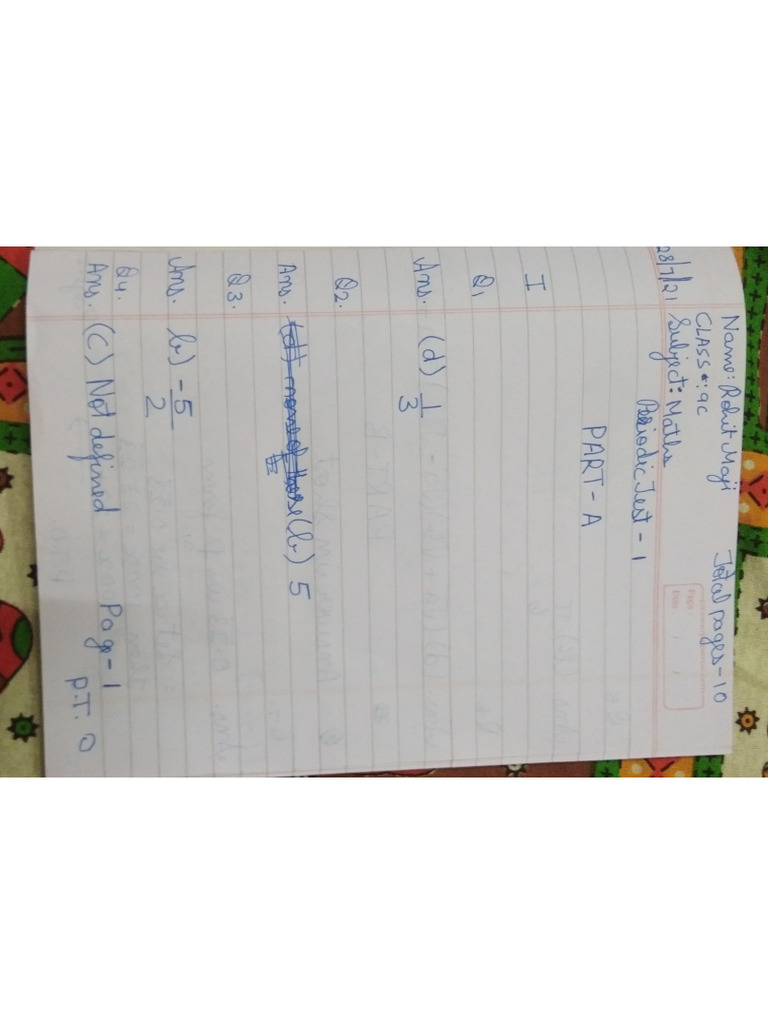 Name: Rohit Maji Total pages-10
CLASS: 9C
28/7/21 Subject: Maths
Page
Date / /
Periodic Test - 1
PART-A
I
Q1
Ans:- (d) 1/3
Q2.
Ans. (d) none of these (b) 5
Q3.
Ans. b) -5/2
Q4.
Ans. (C) Not defined
Page-1
P.T.O